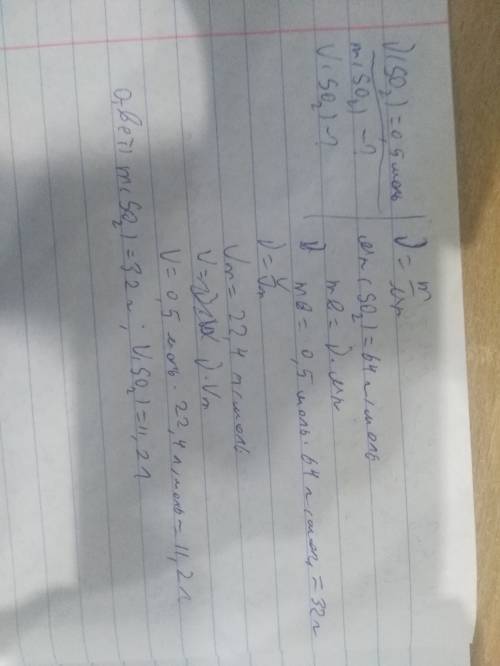 ν(SO₂) = 0,5 моль
m(SO₂) - ?
V(SO₂) - ?
ν = m/Mr
Mr(SO₂) = 64 г/моль
m = ν · Mr
m = 0,5 моль · 64 г/моль = 32 г
ν = V/Vm
Vm = 22,4 л/моль
V = ν · Vm
V = 0,5 моль · 22,4 л/моль = 11,2 л
Ответ: m(SO₂) = 32 г; V(SO₂) = 11,2 л